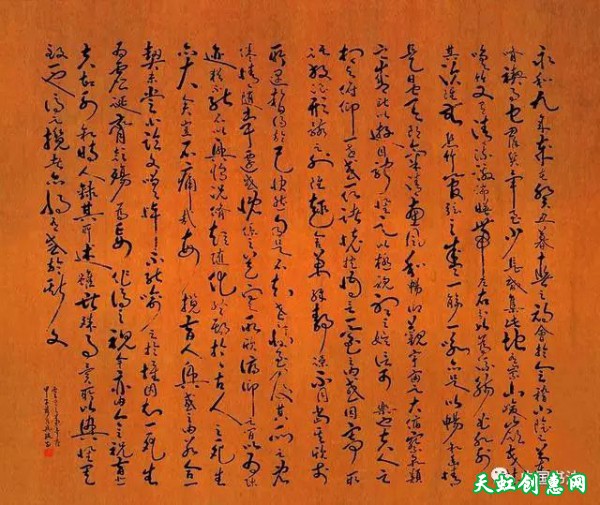 永和九年歲在癸丑暮春之初會於會稽山陰之蘭亭
脩禊事也群賢畢至少長咸集此地有崇山峻領茂林
脩竹又有清流激湍暎帶左右引以為流觴曲水列坐
其次雖無絲竹管弦之盛一觴一詠亦足以暢敘幽情
是日也天朗氣清惠風和暢仰觀宇宙之大俯察品類
之盛所以遊目騁懷足以極視聽之娛信可樂也夫人之
相與俯仰一世或取諸懷抱悟言一室之內或因寄所
託放浪形骸之外雖趣舍萬殊靜躁不同當其欣於
所遇暫得於己快然自足不知老之將至及其所之既
惓情隨事遷感慨係之矣向之所欣俛仰之間以為陳
迹猶不能不以之興懷況脩短隨化終期於盡古人云死生
亦大矣豈不痛哉每攬昔人興感之由若合一
契未嘗不臨文嗟悼不能喻之於懷固知一死生
為虛誕齊彭殤為妄作後之視今亦由今之視昔悲
夫故列敘時人錄其所述雖世殊事異所以興懷其
致一也後之攬者亦將有感於斯文
中国书法
天虹创惠网